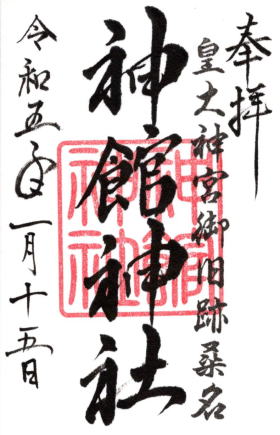 奉拝
皇大神宮御旧跡桑名
神館神社
神館神社
令和五年一月十五日